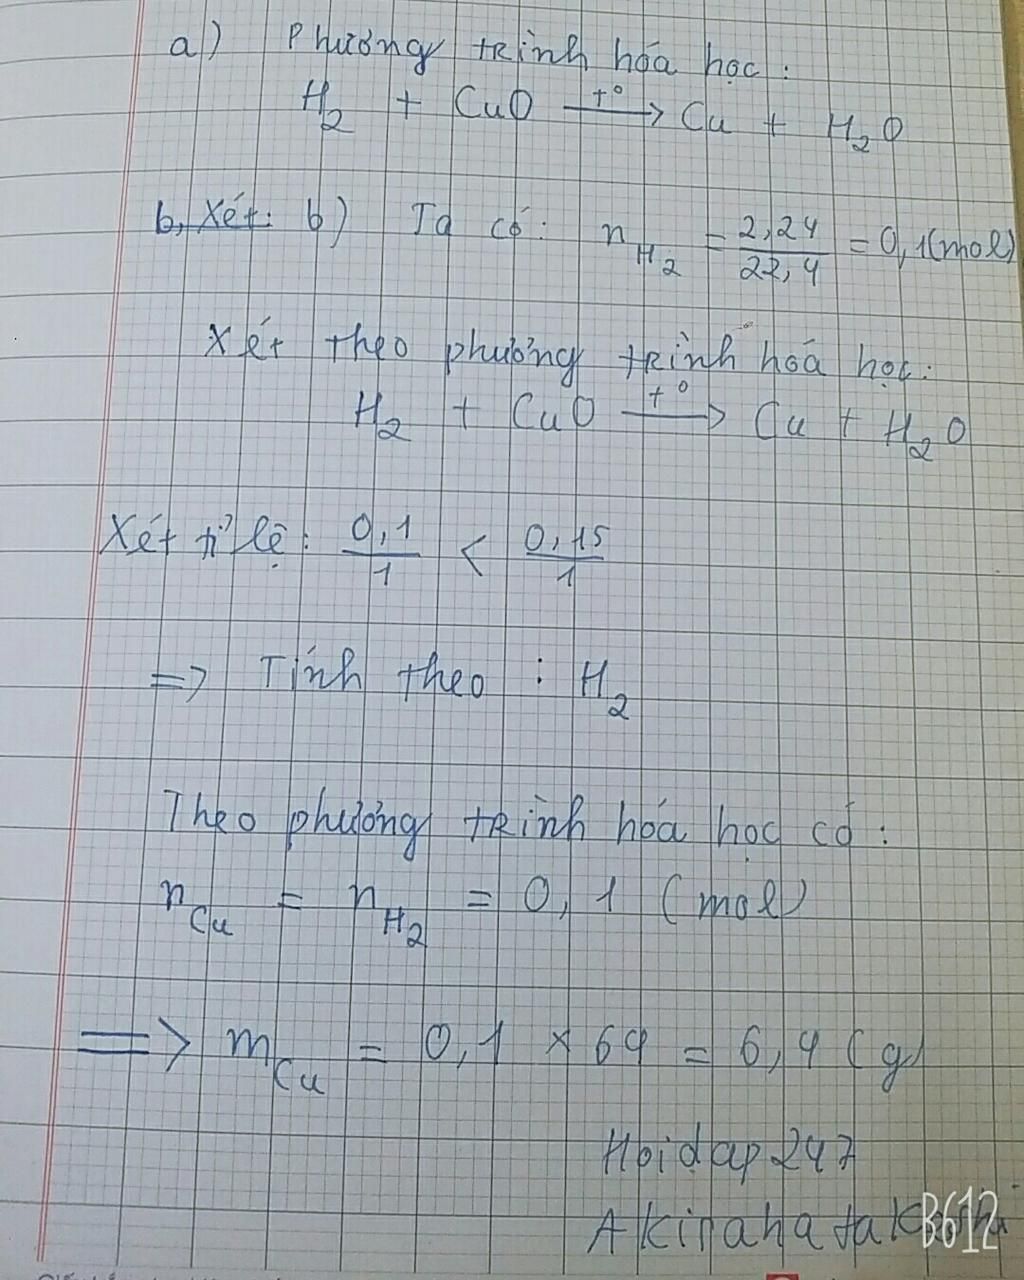 a) Phương trình hóa học:
H2 + CuO t° → Cu + H2O
b, Xét: b) Ta có: nH2 = 2,24/22,4 = 0,1(mol)
Xét theo phương trình hóa học:
H2 + CuO t° → Cu + H2O
Xét tỉ lệ: 0,1/1 < 0,15/1
=> Tính theo : H2
Theo phương trình hóa học có:
nCu = nH2 = 0,1 (mol)
=> mCu = 0,1 × 64 = 6,4 (g)
Hoidap247
B612